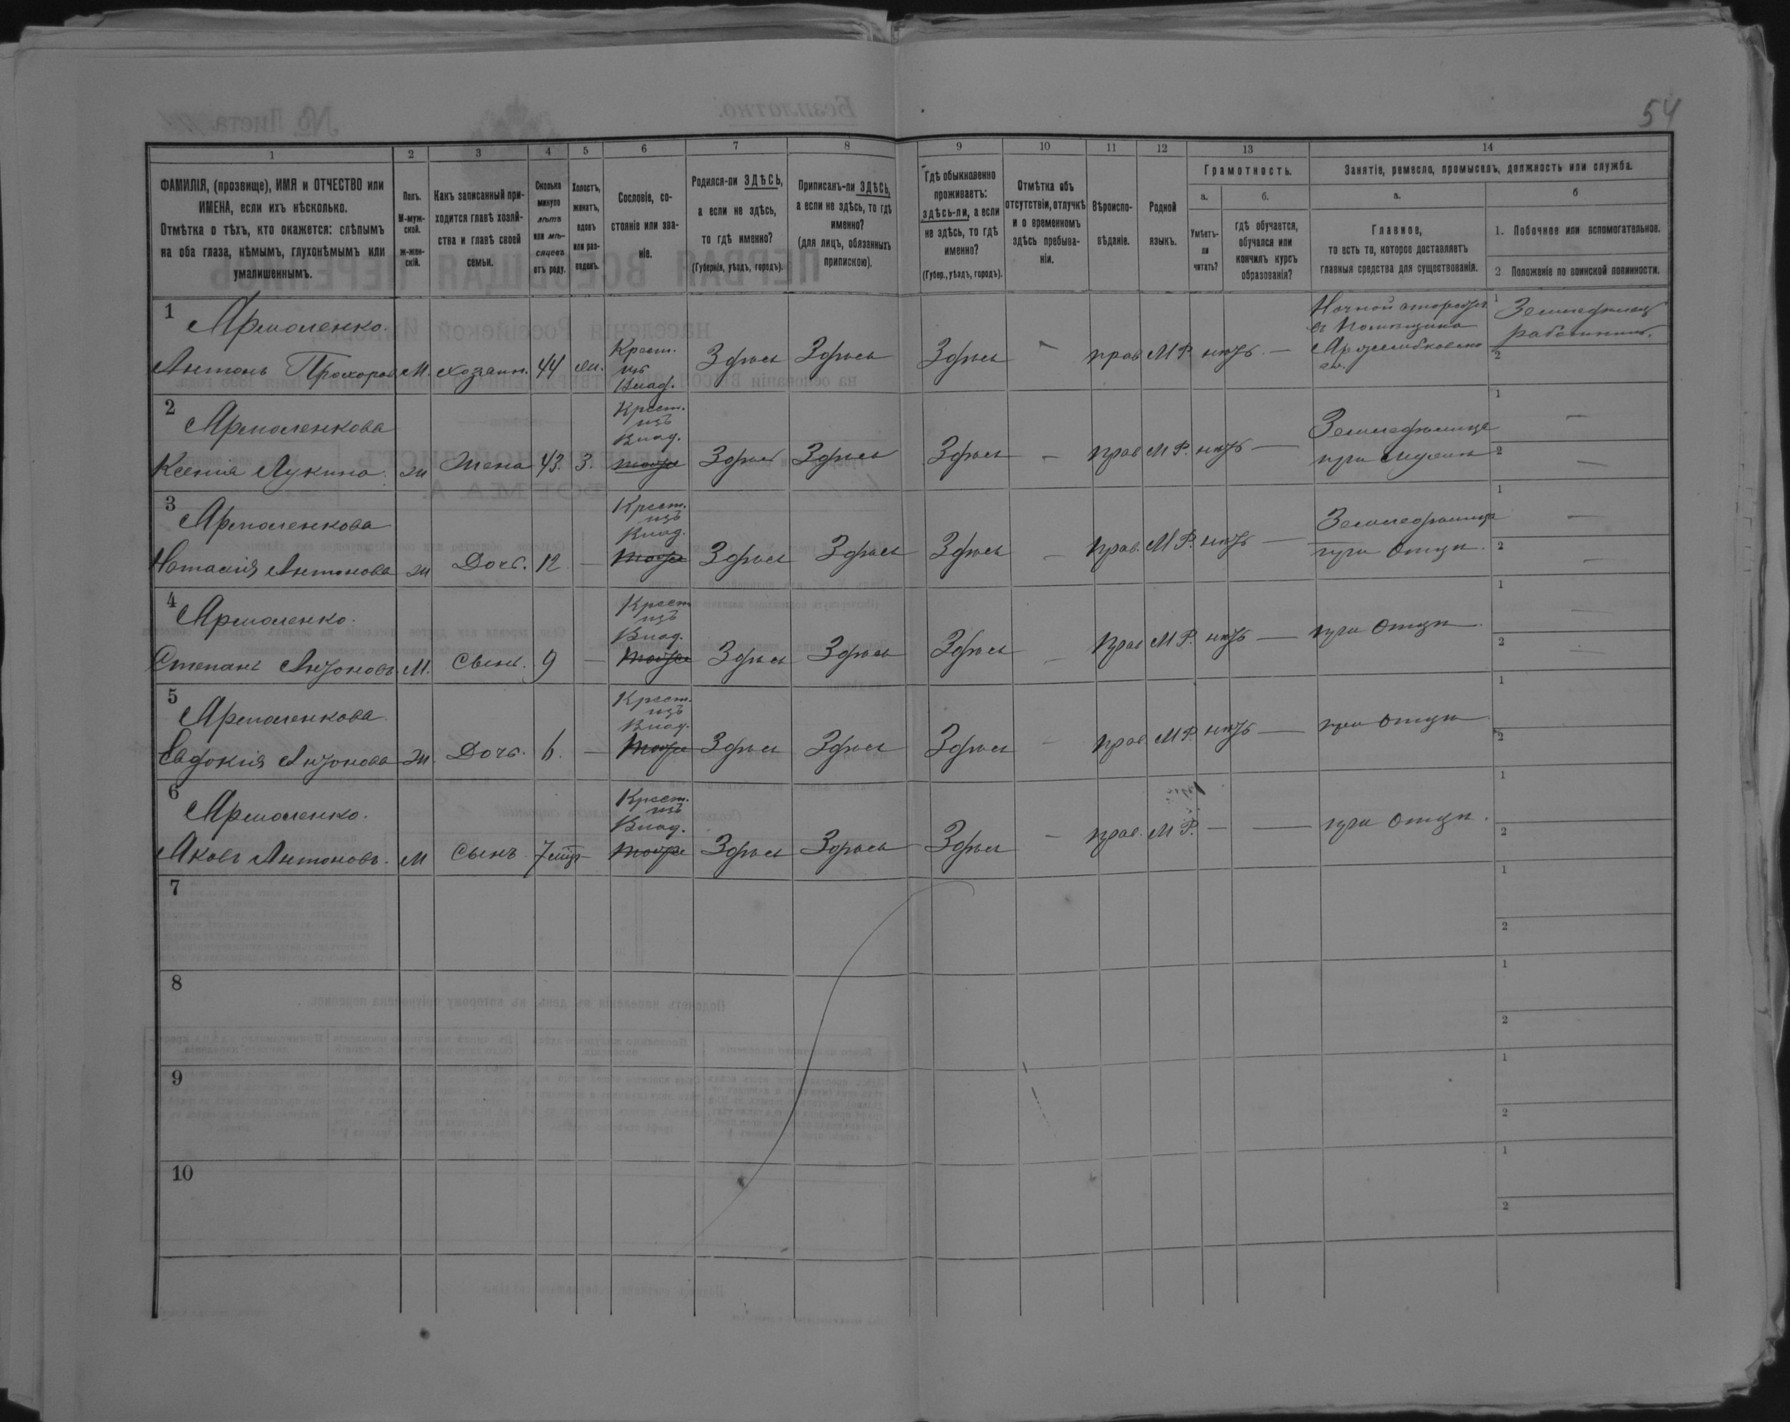 54
1 2 3 4 5 6 7 8 9 10 11 12 13 14
ФАМИЛІЯ, (прозвище), ИМЯ и ОТЧЕСТВО или
ИМЕНА, если ихъ нѣсколько.
Отмѣтка о тѣхъ, кто окажется: слѣпымъ
на оба глаза, нѣмымъ, глухонѣмымъ или
умалишеннымъ.
Полъ.
М-муж-
ской.
ж-жен-
скій.
Какъ записанный при-
ходится главѣ хозяй-
ства и главѣ своей
семьи.
Сколько
минуло
лѣтъ
или мѣ-
сяцевъ
отъ роду.
Холостъ,
женатъ,
вдовъ
или раз-
веденъ.
Сословіе, со-
стояніе или зва-
ніе.
Родился-ли ЗДѢСЬ,
а если не здѣсь,
то гдѣ именно?
(Губернія, уѣздъ, городъ).
Приписанъ-ли ЗДѢСЬ,
а если не здѣсь, то гдѣ
именно?
(для лицъ, обязанныхъ
припискою).
Гдѣ обыкновенно
проживаетъ:
здѣсь-ли, а если
не здѣсь, то гдѣ
именно?
(Губер., уѣздъ, городъ).
Отмѣтка объ
отсутствіи, отлучкѣ
и о временномъ
здѣсь пребыва-
ніи.
Вѣроиспо-
вѣданіе.
Родной
языкъ.
Грамотность.
а. б.
Умѣетъ-
ли
читать?
гдѣ обучается,
обучался или
кончилъ курсъ
образованія?
Занятіе, ремесло, промыселъ, должность или служба.
а. б
Главное,
то есть то, которое доставляетъ
главныя средства для существованія.
1. Побочное или вспомогательное.
2 Положеніе по воинской повинности.
1
Ярмоленко
Антонъ Прохоровъ М хозяин. 44 Крест. Здѣсь Здѣсь Здѣсь — прав М.Р. нѣтъ —
изъ
Влад.
Ночной сторожъ
1
2
2
Ярмоленкова
Ксенія Лукина ж Жена 43. З. Крест. Здѣсь Здѣсь Здѣсь — прав М.Р. нѣтъ —
изъ
Влад.
тоже
при мужѣ
1 —
2 —
3
Ярмоленкова
Наталія Антонова ж Дочь. 12 — Крест. Здѣсь Здѣсь Здѣсь — прав. М.Р. нѣтъ —
изъ
Влад.
тоже
при отцѣ.
1 —
2 —
4
Ярмоленко.
Степанъ Антоновъ М. сынъ. 9 — Крест Здѣсь Здѣсь Здѣсь — прав М.Р. нѣтъ — при отцѣ
изъ
Влад.
тоже
1 —
2 —
5
Ярмоленкова
Евдокія Антонова ж. Дочь. 6. — Крест. Здѣсь Здѣсь Здѣсь — прав. М.Р. нѣтъ — при отцѣ
изъ
Влад.
тоже
1
2
6
Ярмоленко.
Яковъ Антоновъ. М сынъ 7 Крест. Здѣсь Здѣсь Здѣсь — прав. М.Р. — — при отцѣ.
изъ
Влад.
тоже
1
2
7
1
2
8
1
2
9
1
2
10
1
2